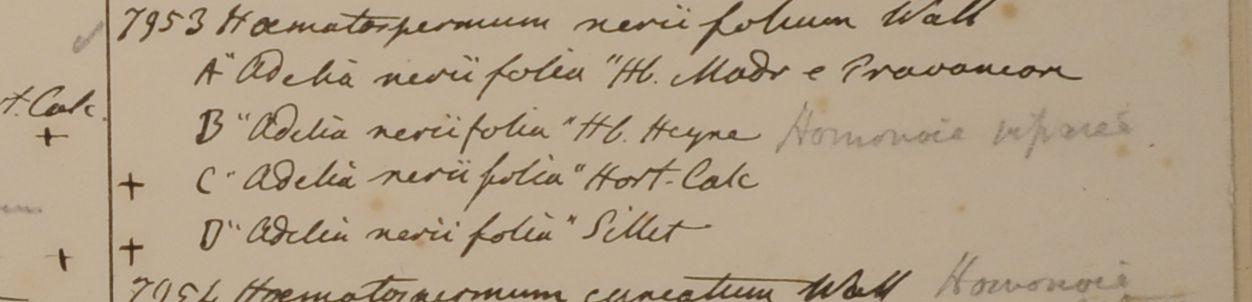 7953 Hæmatospermum nerii folium Wall
A "Adelia nerii folia" Hb. Madr e Travancore
t. Calc.
B "Adelia nerii folia" Hb. Heyne Homonoia riparia
+
+ C "Adelia nerii folia" Hort. Calc
+ D "Adelia nerii folia" Sillet
+
7954 Hæmatospermum cuneatum Wall Homonoia